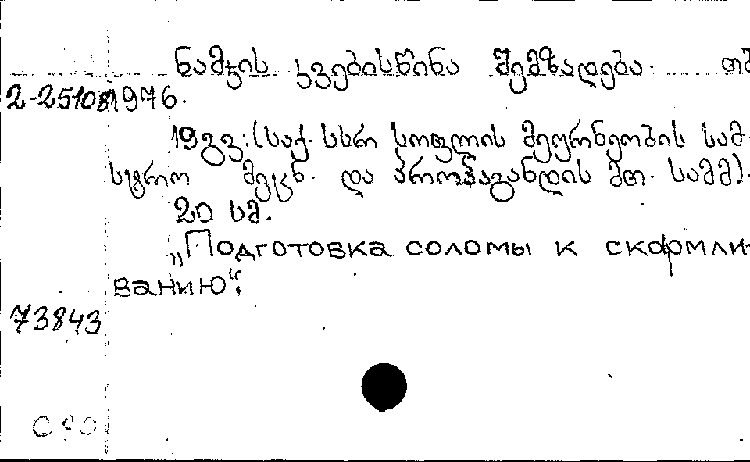 ნამჯის კვებისწინა შემზადება. თბ
2-25108 1976.
19გვ. (საქ. სსრ სოფლის მეურნეობის სამ-
სტრო მეცნ. და პროპაგანდის მთ. სამმ).
20 სმ.
„Подготовка соломы к скормли-
ванию“.
73843